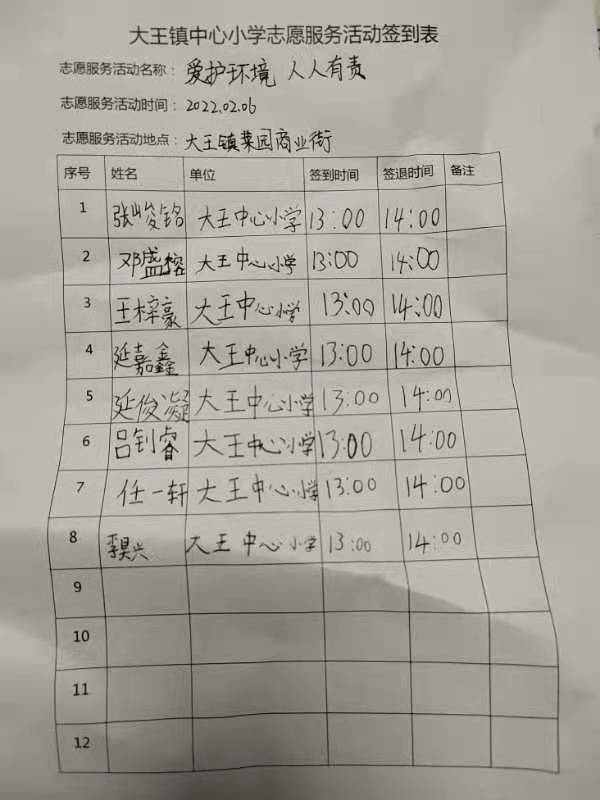 大王镇中心小学志愿服务活动签到表
志愿服务活动名称： 爱护环境 人人有责
志愿服务活动时间： 2022.02.06
志愿服务活动地点： 大王镇菜园商业街
序号 姓名 单位 签到时间 签退时间 备注
1 张峻铭 大王中心小学 13:00 14:00
2 邓盛榕 大王中心小学 13:00 14:00
3 王梓豪 大王中心小学 13:00 14:00
4 延嘉鑫 大王中心小学 13:00 14:00
5 延俊凝 大王中心小学 13:00 14:00
6 吕钊睿 大王中心小学 13:00 14:00
7 任一轩 大王中心小学 13:00 14:00
8 大王中心小学 13:00 14:00
9
10
11
12